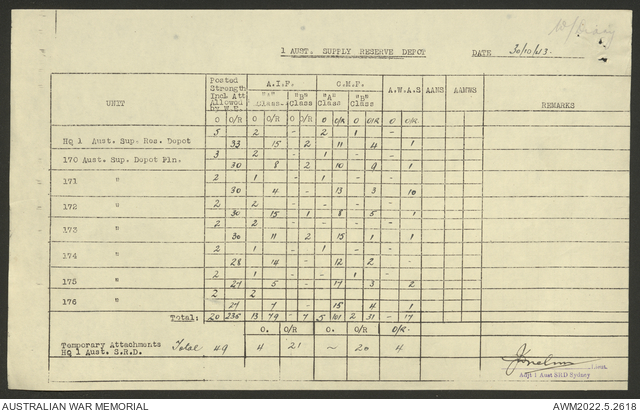 1 AUST. SUPPLY RESERVE DEPOT DATE 30/10/43.
UNIT Posted Strength Incl Att. Allowed by W.E. A.I.F. C.M.F. A.W.A.S AANS AAMWS REMARKS
"A" Class "B" Class "A" Class "B" Class
O O/R O O/R O O/R O O/R O O/R O O/R
5 2 - 2 1 -
HQ 1 Aust. Sup. Res. Depot 33 15 2 11 4 1
3 2 - 1 - -
170 Aust. Sup. Depot Pln. 30 8 2 10 9 1
2 1 - 1 - -
171 " 30 4 - 13 3 10
2 2 - - - -
172 " 30 15 1 8 5 1
2 2 - - - -
173 " 30 11 2 15 1 1
2 1 - 1 - -
174 " 28 14 - 12 2 -
2 1 - - 1 -
175 " 27 5 - 17 3 2
2 2
176 " 27 7 - 15 4 1
Total: 20 235 13 79 - 7 5 101 2 31 - 17
O. O/R O. O/R O/R.
Temporary Attachments Total 49 4 21 ~ 20 4
HQ 1 Aust. S.R.D.
Lieut.
Adjt 1 Aust SRD Sydney
AUSTRALIAN WAR MEMORIAL AWM2022.5.2618